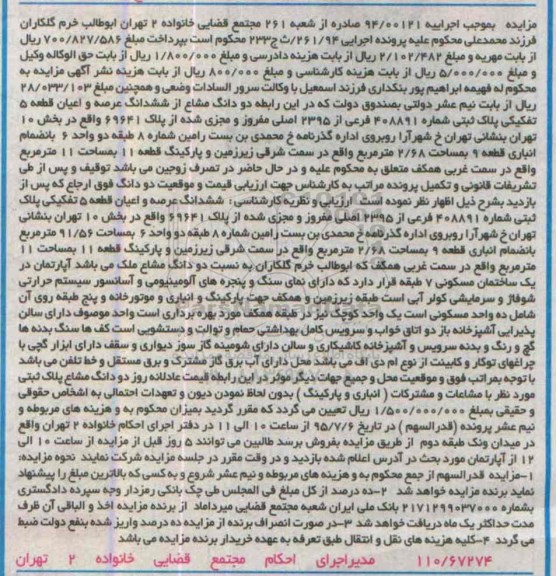 مزایده بموجب اجراییه ۹۴/۰۰۱۲۱ صادره از شعبه ۲۶۱ مجتمع قضایی خانواده ۲ تهران ابوطالب خرم گلکاران
فرزند محمدعلی محکوم علیه پرونده اجرایی ۲۶۱/۹۴/ث ج۲۳۳ محکوم است بپرداخت مبلغ ۷۰۰/۸۲۷/۵۸۶ ریال
از بابت مهریه و مبلغ ۲/۱۰۲/۴۸۲ ریال از بابت هزینه دادرسی و مبلغ ۱/۸۰۰/۰۰۰ ریال از بابت حق الوکاله وکیل
و مبلغ ۵/۰۰۰/۰۰۰ ریال از بابت هزینه کارشناسی و مبلغ ۸۰۰/۰۰۰ ریال از بابت هزینه نشر آگهی مزایده به
محکوم له فهیمه ابراهیم پور بنکداری فرزند اسمعیل با وکالت سرور السادات وضعی و همچنین مبلغ ۲۸/۰۳۳/۱۰۳
ریال از بابت نیم عشر دولتی بصندوق دولت که در این رابطه دو دانگ مشاع از ششدانگ عرصه و اعیان قطعه ۵
تفکیکی پلاک ثبتی شماره ۴۰۸۸۹۱ فرعی از ۲۳۹۵ اصلی مفروز و مجزی شده از پلاک ۶۹۶۴۱ واقع در بخش ۱۰
تهران بنشانی تهران خ شهرآرا روبروی اداره گذرنامه خ محمدی بن بست رامین شماره ۸ طبقه دو واحد ۶ بانضمام
انباری قطعه ۹ بمساحت ۲/۶۸ مترمربع واقع در سمت شرقی زیرزمین و پارکینگ قطعه ۱۱ بمساحت ۱۱ مترمربع
واقع در سمت غربی همکف متعلق به محکوم علیه و در حال حاضر در تصرف زوجین می باشد توقیف و پس از طی
تشریفات قانونی و تکمیل پرونده مراتب به کارشناس جهت ارزیابی قیمت و موقعیت دو دانگ فوق ارجاع که پس از
بازدید بشرح ذیل اظهار نظر نموده است ارزیابی و نظریه کارشناسی: ششدانگ عرصه و اعیان قطعه ۵ تفکیکی پلاک
ثبتی شماره ۴۰۸۸۹۱ فرعی از ۲۳۹۵ اصلی مفروز و مجزی شده از پلاک ۶۹۶۴۱ واقع در بخش ۱۰ تهران بنشانی
تهران خ شهرآرا روبروی اداره گذرنامه خ محمدی بن بست رامین شماره ۸ طبقه دو واحد ۶ بمساحت ۹۱/۵۶ مترمربع
بانضمام انباری قطعه ۹ بمساحت ۲/۶۸ مترمربع واقع در سمت شرقی زیرزمین و پارکینگ قطعه ۱۱ بمساحت ۱۱
مترمربع واقع در سمت غربی همکف که ابوطالب خرم گلکاران به نسبت دو دانگ مشاع ملک می باشد آپارتمان در
یک ساختمان مسکونی ۷ طبقه قرار دارد که دارای نمای سنگ و پنجره های آلومینیومی و آسانسور سیستم حرارتی
شوفاژ و سرمایشی کولر آبی است طبقه زیرزمین و همکف جهت پارکینگ و انباری و موتورخانه و پنج طبقه روی آن
شامل ده واحد مسکونی است یک واحد کوچک نیز در طبقه همکف مورد بهره برداری است واحد موصوف دارای سالن
پذیرایی آشپزخانه باز دو اتاق خواب و سرویس کامل بهداشتی حمام و توالت و دستشویی است کف ها سنگ بدنه ها
گچ و رنگ و بدنه سرویس و آشپزخانه کاشیکاری و سالن دارای شومینه گاز سوز دیواری و سقف دارای ابزار گچی با
چراغهای توکار و کابینت از نوع ام دی اف می باشد محل دارای آب برق گاز مشترک و برق مستقل و خط تلفن می باشد
با توجه بمراتب فوق و موقعیت محل و جمیع جهات دیگر موثر در این رابطه قیمت عادلانه روز دو دانگ مشاع پلاک ثبتی
مورد نظر با مشاعات و مشترکات ( انباری و پارکینگ ) بدون لحاظ نمودن دیون و تعهدات احتمالی به اشخاص حقوقی
و حقیقی بمبلغ ۱/۵۰۰/۰۰۰/۰۰۰ ریال تعیین می گردد که مقرر گردید بمیزان محکوم به و هزینه های مربوطه و
نیم عشر پرونده (قدرالسهم ) در تاریخ ۹۵/۷/۶ از ساعت ۱۰ الی ۱۱ در دفتر اجرای احکام خانواده ۲ تهران واقع
در میدان ونک طبقه دوم از طریق مزایده بفروش برسد طالبین می توانند ۵ روز قبل از مزایده از ساعت ۱۰ الی
۱۲ از آپارتمان مورد بحث در آدرس اعلام شده بازدید و در وقت مقرر در جلسه مزایده شرکت نمایند نحوه مزایده:
۱-مزایده قدرالسهم از جمع محکوم به و هزینه های مربوطه و نیم عشر شروع و به کسی که بالاترین مبلغ را پیشنهاد
نماید برنده مزایده خواهد شد ۲-ده درصد از کل مبلغ فی المجلس طی چک بانکی رمزدار وجه سپرده دادگستری
بشماره ۲۱۷۱۲۹۹۰۳۷۰۰۰ بانک ملی ایران شعبه مجتمع قضایی میرداماد از برنده مزایده اخذ و الباقی آن ظرف
مدت حداکثر یک ماه دریافت خواهد شد ۳-در صورت انصراف برنده از مزایده ده درصد واریز شده بنفع دولت ضبط
می گردد ۴-کلیه هزینه های نقل و انتقال طبق تعرفه به عهده خریدار برنده مزایده می باشد
۱۱۰/۶۷۲۷۴ مدیراجرای احکام مجتمع قضایی خانواده ۲ تهران